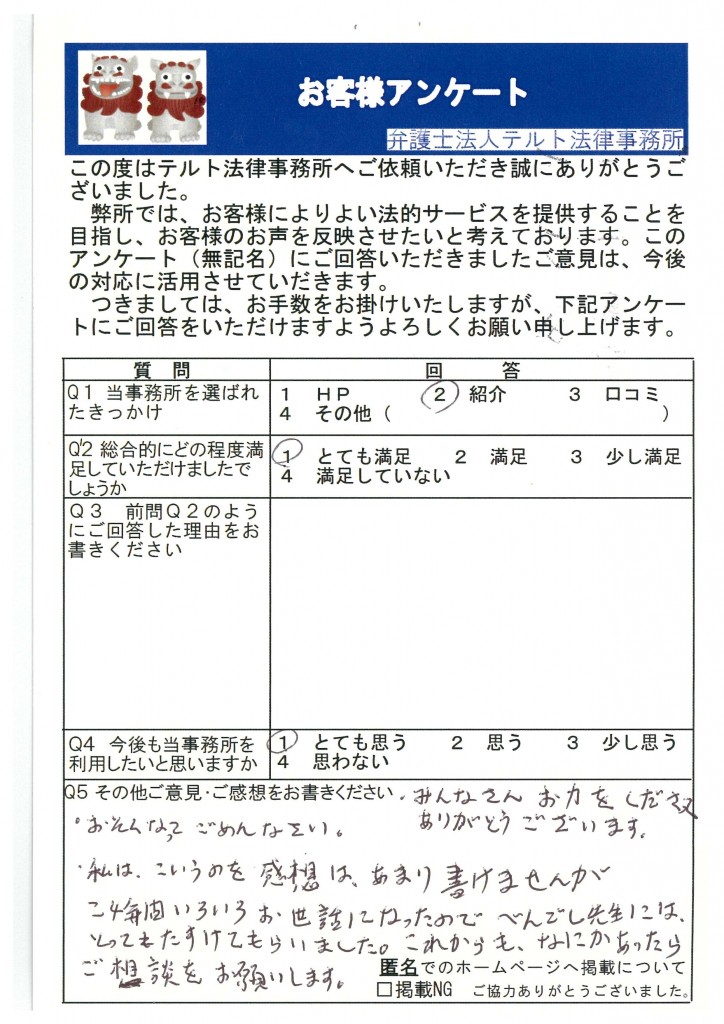 お客様アンケート
弁護士法人テルト法律事務所
この度はテルト法律事務所へご依頼いただき誠にありがとうご
ざいました。
弊所では、お客様によりよい法的サービスを提供することを
目指し、お客様のお声を反映させたいと考えております。この
アンケート（無記名）にご回答いただきましたご意見は、今後
の対応に活用させていだきます。
つきましては、お手数をお掛けいたしますが、下記アンケー
トにご回答をいただけますようよろしくお願い申し上げます。
質 問 回 答
Q1 当事務所を選ばれ
たきっかけ
1 HP 2 紹介 3 口コミ
4 その他（ ）
Q2 総合的にどの程度満
足していただけましたで
しょうか
1 とても満足 2 満足 3 少し満足
4 満足していない
Q3 前問Q2のよう
にご回答した理由をお
書きください
Q4 今後も当事務所を
利用したいと思いますか
1 とても思う 2 思う 3 少し思う
4 思わない
Q5 その他ご意見・ご感想をお書きください
・みんなさん お力をくださ
ありがとうございます。
・おそなって ごめんなさい。
・私は、こいうのを 感想は、あまり書けませんが
いろいろ お世話になったので べんごし先生には、
とってもたすけてもらいました。これからも、なにかあったら
ご想談をお願いします。
匿名でのホームページへ掲載について
□掲載NG ご協力ありがとうございました。